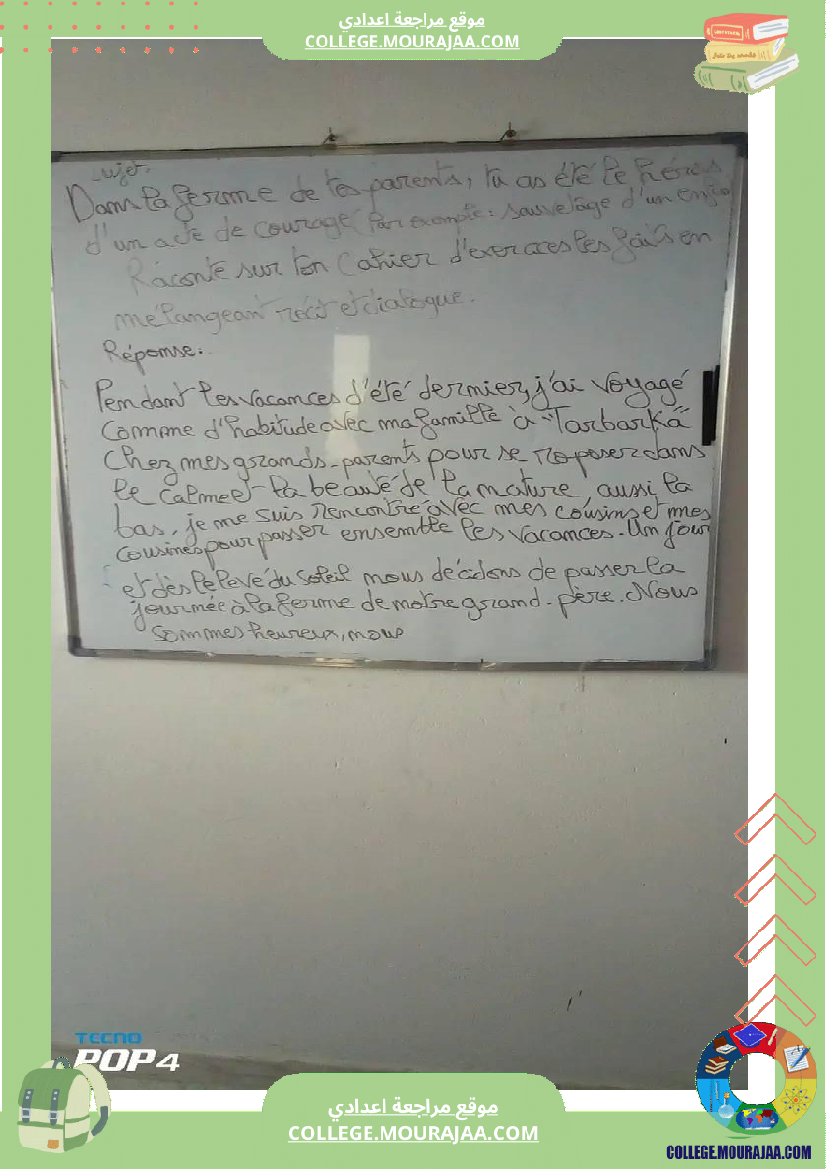 موقع مراجعة اعدادي
COLLEGE.MOURAJAA.COM
sujet.
Dans la ferme de tes parents, tu as été le héros
d'un acte de courage (Par exemple: sauvetage d'un
Raconte sur ton Cahier d'exercices les faits en
mélangeant récit et dialogue.
Réponse:
Pendant les vacances d'été dernier, j'ai voyagé
comme d'habitude avec ma famille à "Tarbarka"
chez mes grands-parents pour se reposer dans
le calme et la beauté de la nature, aussi la
bas, je me suis rencontré avec mes cousins et mes
cousines pour passer ensemble les vacances. Un jour
et dès le levé du soleil nous décidons de passer la
journée à la ferme de notre grand-père. Nous
sommes heureux, nous
TECNO
POP 4
موقع مراجعة اعدادي
COLLEGE.MOURAJAA.COM
COLLEGE.MOURAJAA.COM